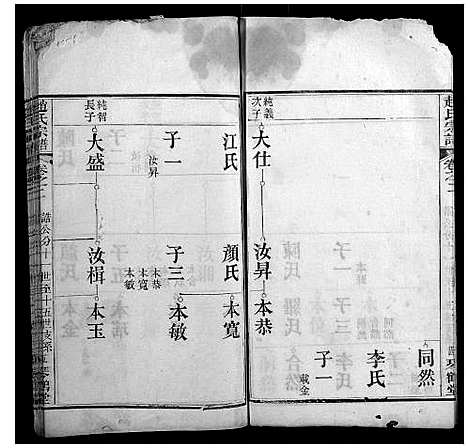 趙氏宗譜
卷之二
琴鶴堂
同然
李氏
子一
載金
純義
次子
大仕
汝昇
本恭
江氏
顏氏
本寬
子一
汝昇
子三
本恭
本寬
本敏
本敏
純智
長子
大盛
汝楫
本玉
趙氏宗譜
卷之二
誥公分十一世至十五世支系
琴鶴堂